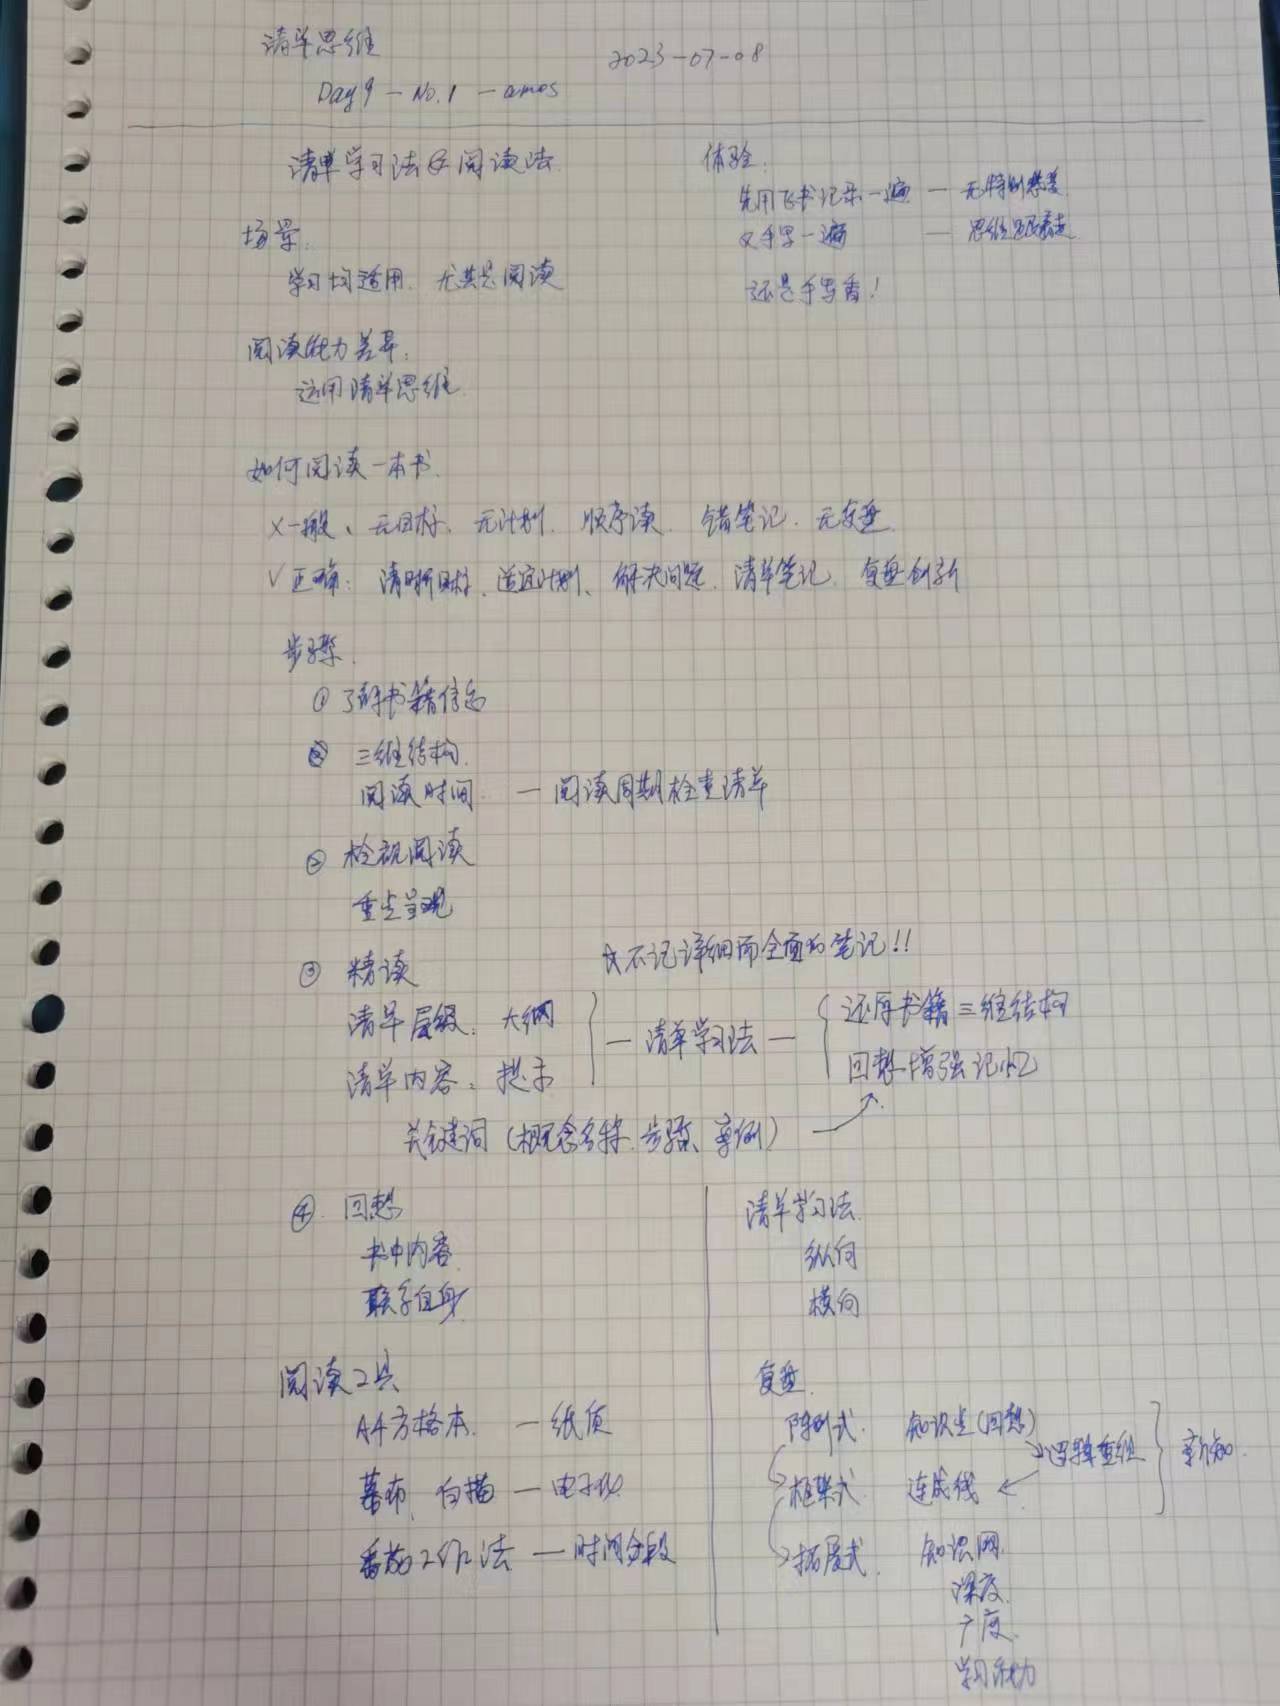 清单思维
2023-07-08
Day9 - No.1 - amos
清单学习法&阅读法
体验:
先用飞书记录一遍 — 无特别感羡
又手写一遍 — 思维
还是手写香!
场景:
学习均适用、尤其是阅读
阅读能力差异:
运用清单思维
如何阅读一本书
×一般、无目标、无计划、顺序读、错笔记、无复盘
√正确:清晰目标、适宜计划、解决问题、清单笔记、复盘创新
步骤.
① 了解书籍信息
三维结构
阅读时间 — 阅读周期检查清单
② 检视阅读
重点呈现
③ 精读
☆不记详细而全面的笔记!!
清单层级:大纲
清单内容:提示
— 清单学习法 —
还原书籍三维结构
回想增强记忆
关键词(概念名称、步骤、案例)
④ 回想
书中内容
联系自身
清单学习法
纵向
横向
阅读工具
A4方格本 — 纸质
幕布、白描 — 电子化
番茄工作法 — 时间分段
复盘
陈列式 知识点(回想)
逻辑重组
新知
框架式 连成线
拓展式 知识网
深度
广度
学习能力